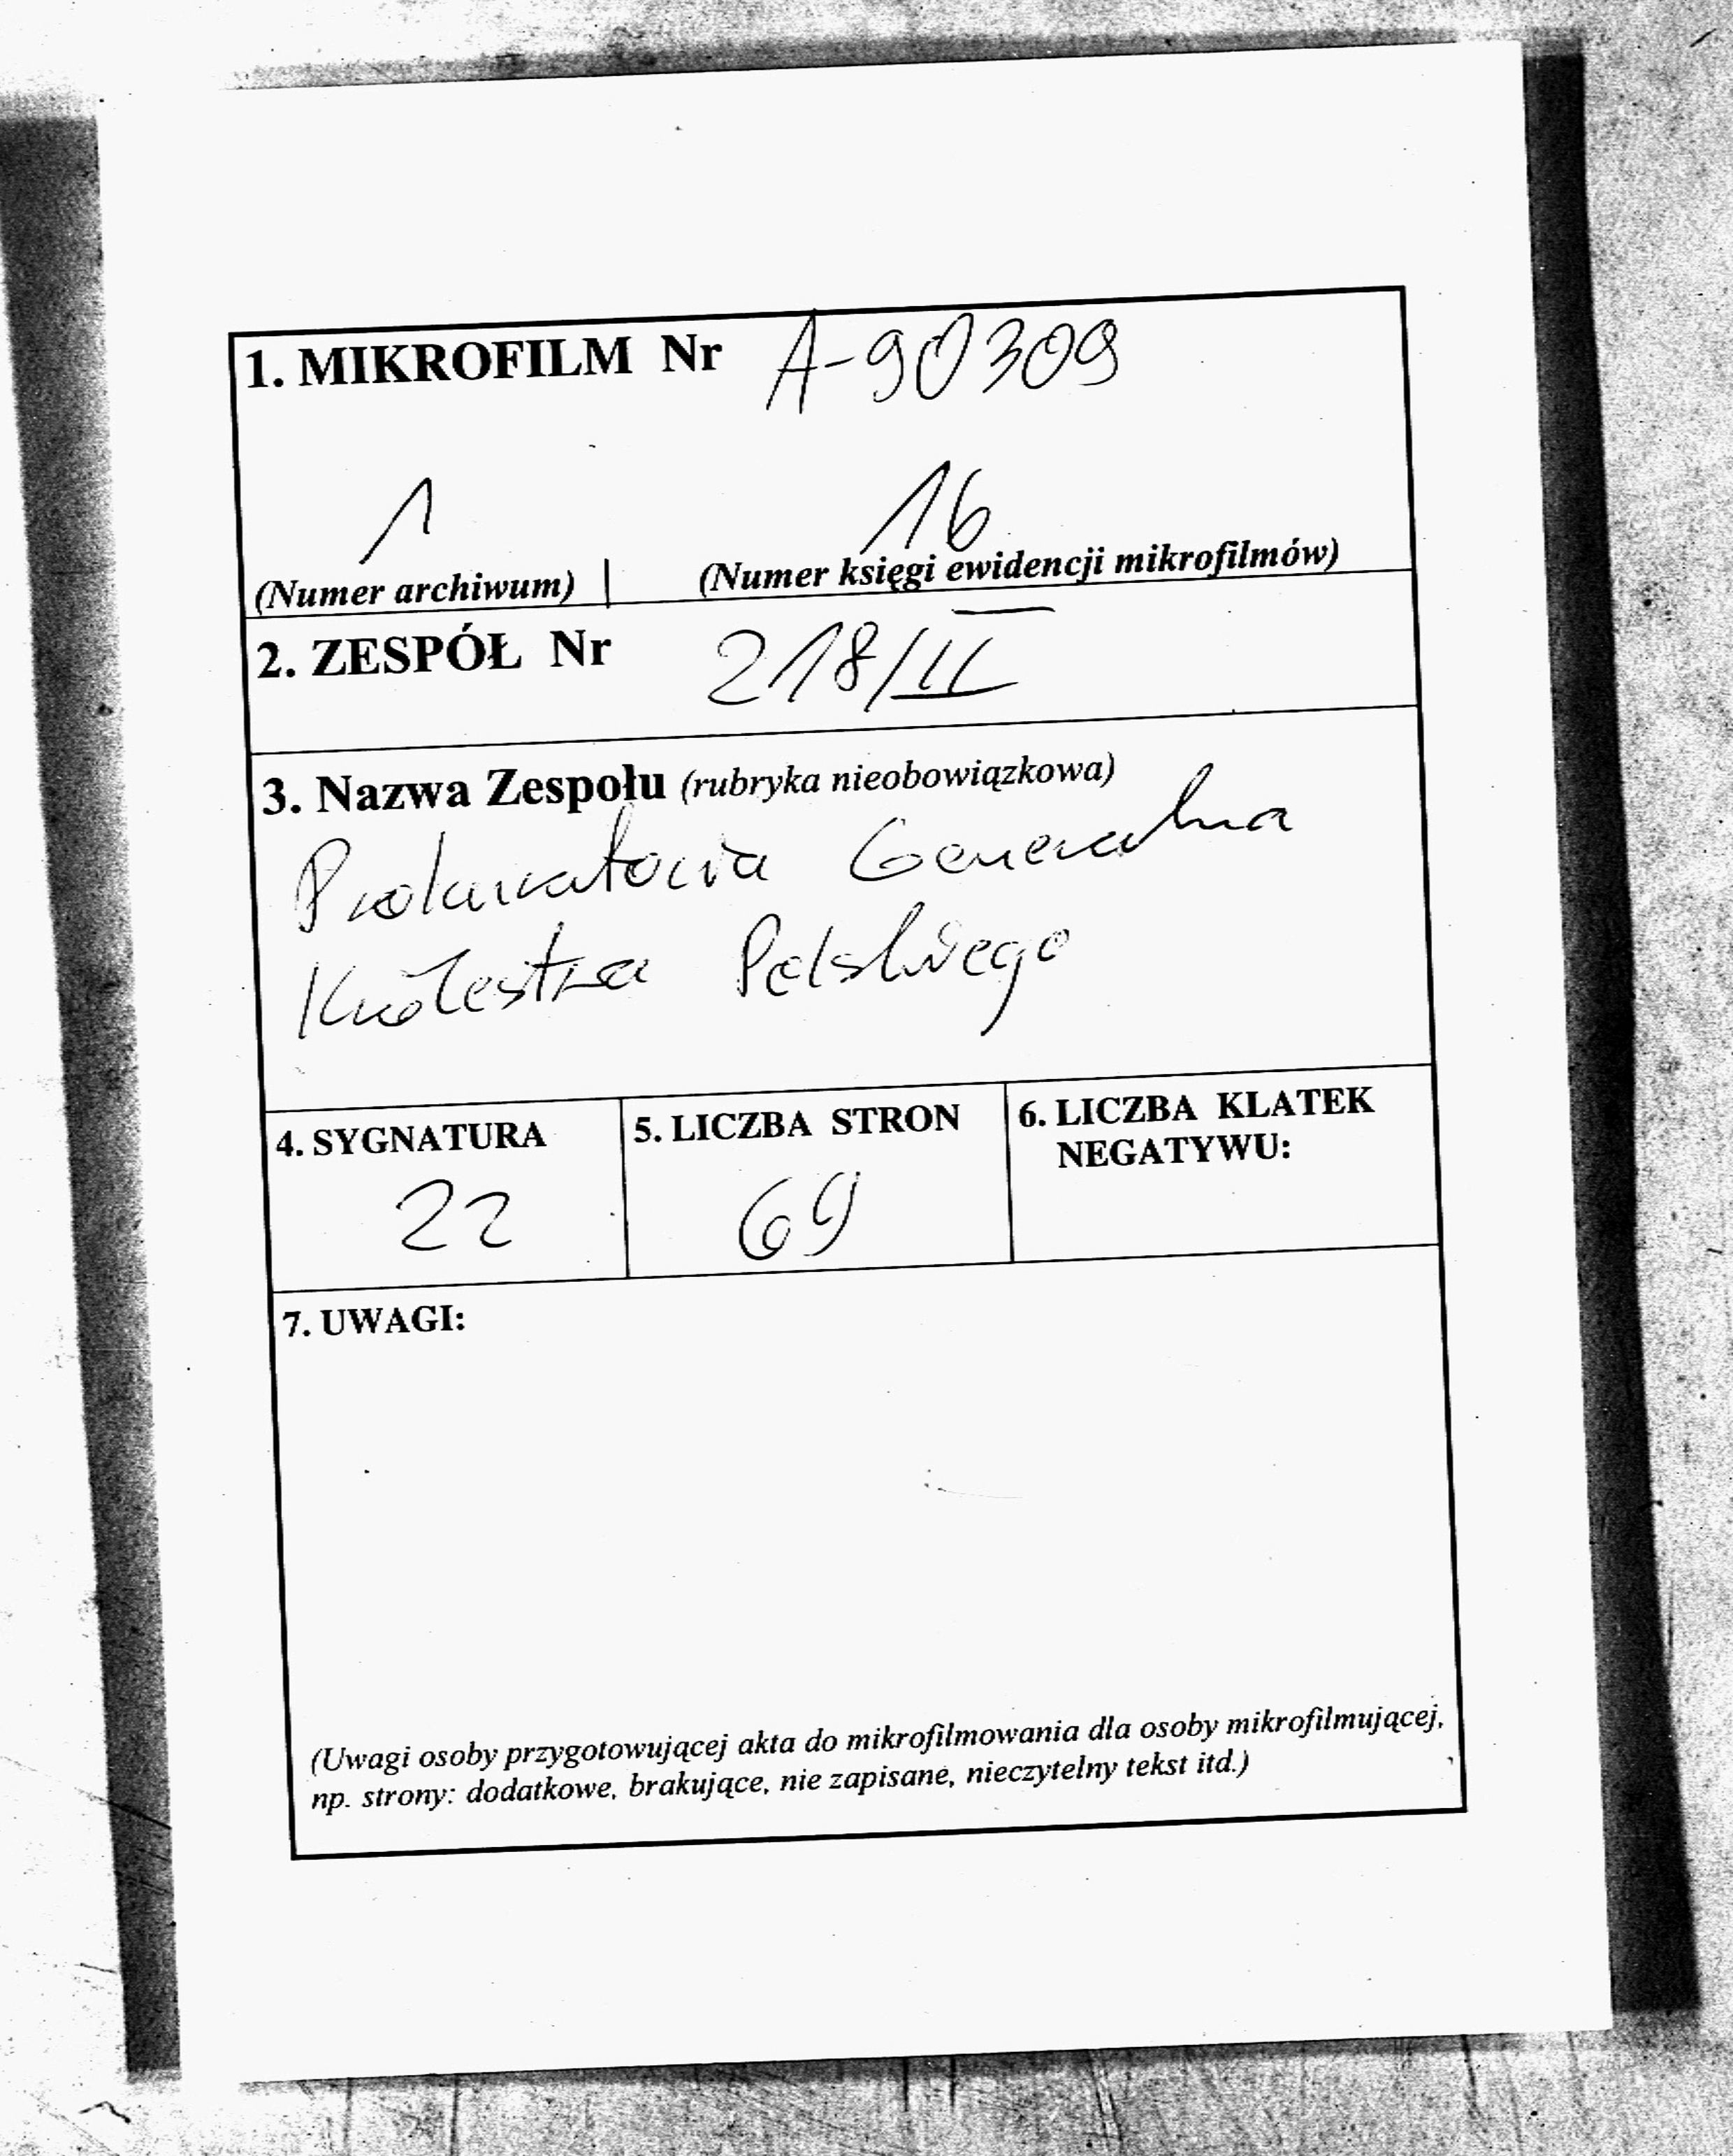 1. MIKROFILM Nr A-90309
1 16
(Numer archiwum) | (Numer księgi ewidencji mikrofilmów)
2. ZESPÓŁ Nr 218/II
3. Nazwa Zespołu (rubryka nieobowiązkowa)
Prokuratoria Generalna
Królestwa Polskiego
4. SYGNATURA 5. LICZBA STRON 6. LICZBA KLATEK
NEGATYWU:
22 69
7. UWAGI:
(Uwagi osoby przygotowującej akta do mikrofilmowania dla osoby mikrofilmującej,
np. strony: dodatkowe, brakujące, nie zapisane, nieczytelny tekst itd.)